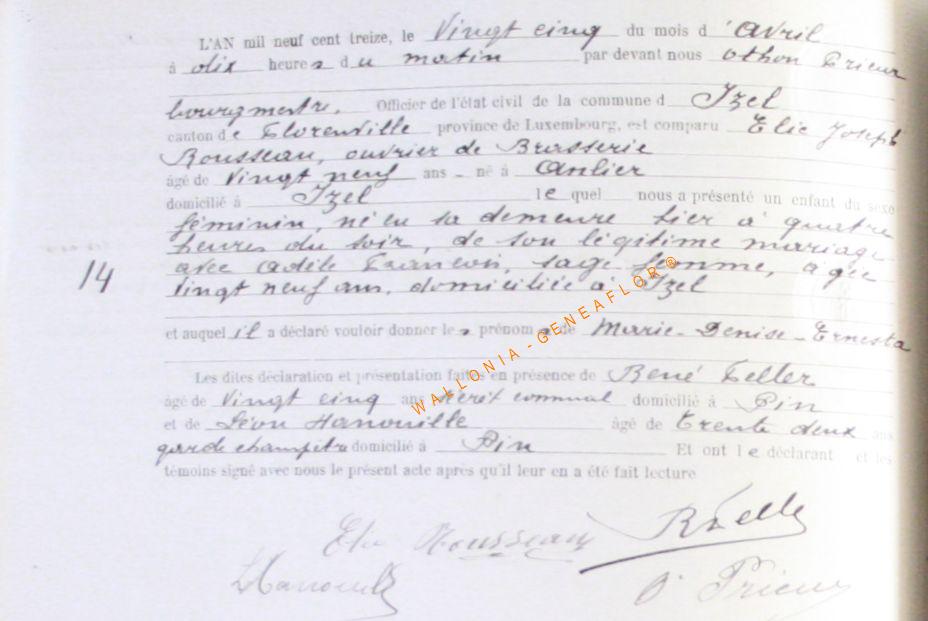 L'AN mil neuf cent treize, le Vingt cinq du mois d'Avril
à dix heures du matin par devant nous Othon Prieur
bourgmestre. Officier de l'état civil de la commune d Izel
canton de Florenville province de Luxembourg, est comparu Elie Joseph
Rousseau, ouvrier de Brasserie
âgé de Vingt neuf ans né à Anlier
domicilié à Izel lequel nous a présenté un enfant du sexe
féminin, né en sa demeure hier à quatre
heures du soir, de son légitime mariage
avec Adèle François, sage femme, agée
vingt neuf ans, domiciliée à Izel
14
et auquel il a déclaré vouloir donner les prénoms de Marie-Denise-Ernesta
Les dites déclaration et présentation faites en présence de René Feller
âgé de Vingt cinq ans communal domicilié à Pin
et de Léon Hanouille âgé de Trente deux ans
garde champêtre domicilié à Pin Et ont le déclarant et les
témoins signé avec nous le présent acte après qu'il leur en a été fait lecture
Elie Rousseau
O Prieur
WALLONIA - GENEAFLOR®